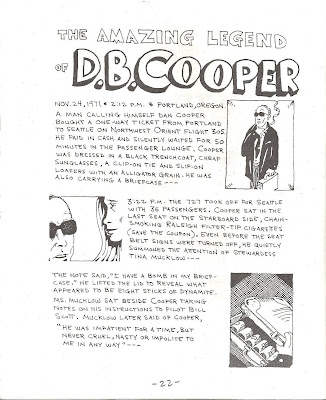 THE AMAZING LEGEND
OF D.B. COOPER
NOV. 24, 1971 • 2:12 P.M. • PORTLAND, OREGON.
A MAN CALLING HIMSELF DAN COOPER
BOUGHT A ONE-WAY TICKET FROM PORTLAND
TO SEATTLE ON NORTHWEST ORIENT FLIGHT 305
HE PAID IN CASH AND SILENTLY WAITED FOR 50
MINUTES IN THE PASSENGER LOUNGE. COOPER
WAS DRESSED IN A BLACK TRENCHCOAT, CHEAP
SUNGLASSES, A CLIP-ON TIE AND SLIP-ON
LOAFERS WITH AN ALLIGATOR GRAIN. HE WAS
ALSO CARRYING A BRIEFCASE ---
3:22 P.M. THE 727 TOOK OFF FOR SEATTLE
WITH 36 PASSENGERS. COOPER SAT IN THE
LAST SEAT ON THE STARBOARD SIDE, CHAIN-
SMOKING RALEIGH FILTER-TIP CIGARETES
(SAVE THE COUPON). EVEN BEFORE THE SEAT
BELT SIGNS WERE TURNED OFF, HE QUIETLY
SUMMONED THE ATTENTION OF STEWARDESS
TINA MUCKLOW ---
THE NOTE SAID, "I HAVE A BOMB IN MY BRIEF-
CASE." HE LIFTED THE LID TO REVEAL WHAT
APPEARED TO BE EIGHT STICKS OF DYNAMITE.
MS. MUCKLOW SAT BESIDE COOPER TAKING
NOTES ON HIS INSTRUCTIONS TO PILOT BILL
SCOTT. MUCKLOW LATER SAID OF COOPER,
"HE WAS IMPATIENT FOR A TIME, BUT
NEVER CRUEL, NASTY OR IMPOLITE TO
ME IN ANY WAY" ---
-22-